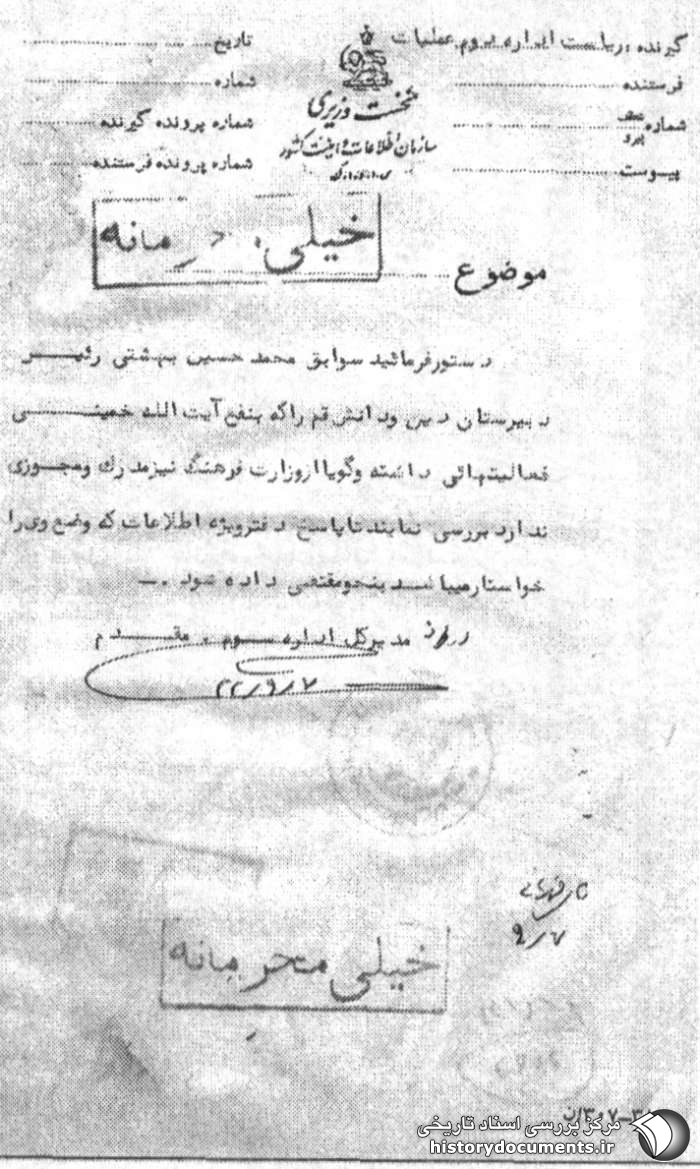 گیرنده ریاست اداره دوم عملیات
تاریخ
فرستنده
شماره
شماره
شماره پرونده گیرنده
پیوست
شماره پرونده فرستنده
نخست وزیری
سازمان اطلاعات و امنیت کشور
خیلی محرمانه
موضوع
دستور فرمائید سوابق محمد حسین بهشتی رئیس
دبیرستان دین ودانش قم راکه بنفع آیت الله خمینی
فعالیتهائی داشته وگویا ازوزارت فرهنگ نیزمدرک ومجوزی
ندارد بررسی نمایند تا پاسخ دفترویژه اطلاعات که وضع وی را
خواستار میباشند بنحومقتضی داده شود .ـ
مدیرکل اداره سوم . مقدم
۲۲/۹/۷
۹/۷
خیلی محرمانه
مرکز بررسی اسناد تاریخی
historydocuments.ir